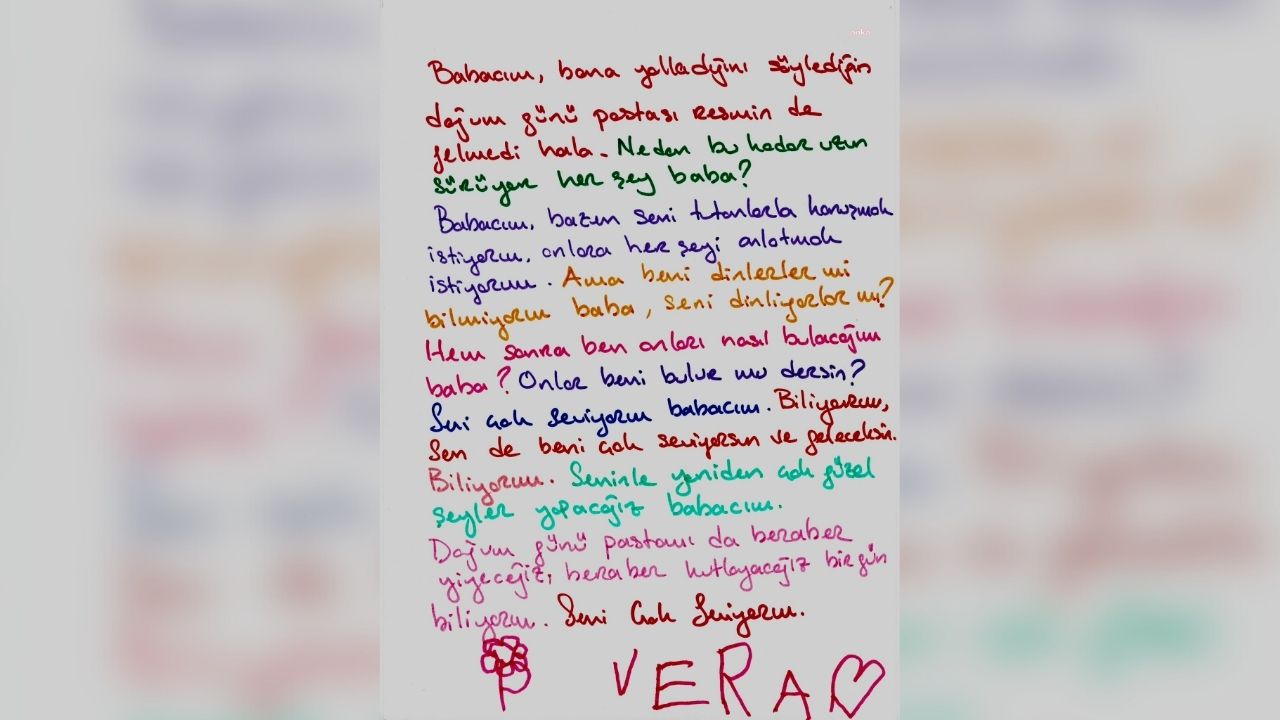 anka
Babacım, bana yolladığını söylediğin
doğum günü pastası resmin de
gelmedi hala. Neden bu kadar uzun
sürüyor her şey baba?
Babacım, bazen seni tutanlarla konuşmak
istiyorum, onlara her şeyi anlatmak
istiyorum. Ama beni dinlerler mi
bilmiyorum baba, seni dinliyorlar mı?
Hem sonra ben onları nasıl bulacağım
baba? Onlar beni bulur mu dersin?
Seni çok seviyorum babacım. Biliyorum,
Sen de beni çok seviyorsun ve geleceksin.
Biliyorum. Seninle yeniden çok güzel
şeyler yapacağız babacım.
Doğum günü pastamı da beraber
yiyeceğiz, beraber kutlayacağız bir gün
biliyorum. Seni Çok Seviyorum.
VERA